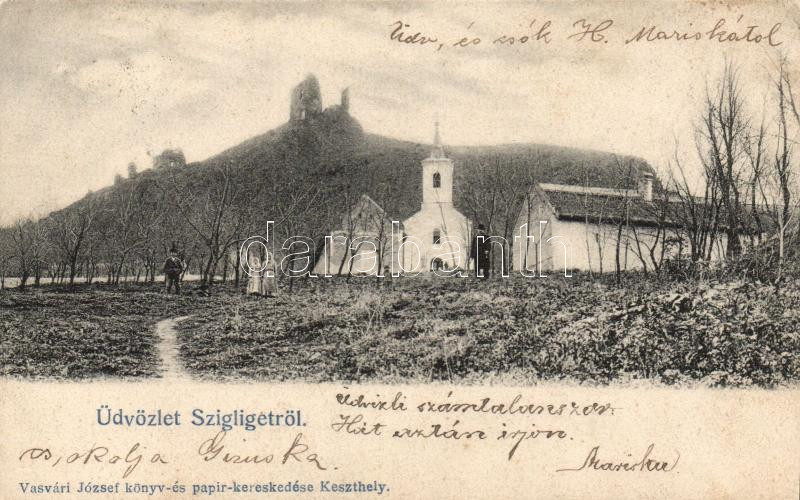 Üdv, és csók H. Mariskától
darabanth
Üdvözlet Szigligetről.
Üdvözli számtalanszor
Hát aztán irjon.
csókolja Gizuska
Mariska
Vasvári József könyv-és papir-kereskedése Keszthely.